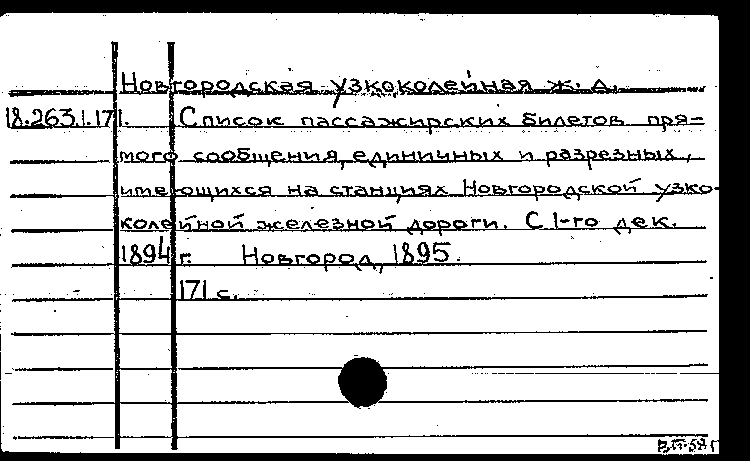 Новгородская узкоколейная ж. д.
18.263.1.171. Список пассажирских билетов пря=
мого сообщения, единичных и разрезных,
имеющихся на станциях Новгородской узко-
колейной железной дороги. С 1-го дек.
1894 г. Новгород, 1895.
171 с.